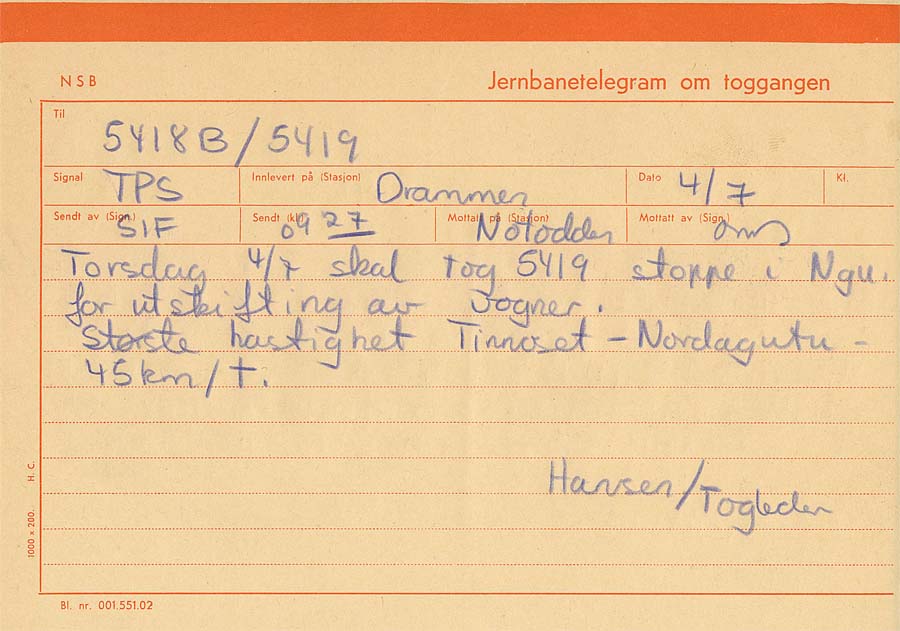 NSB Jernbanetelegram om toggangen
Til
5418B/5419
Signal TPS Innlevert på (Stasjon) Drammen Dato 4/7 Kl.
Sendt av (Sign.) SIF Sendt (kl.) 09 27 Mottatt på (Stasjon) Notodden Mottatt av (Sign.)
Torsdag 4/7 skal tog 5419 stoppe i Ngu.
for utskifting av vogner.
Største hastighet Tinnoset - Nordagutu -
45 km/t.
Hansen/Togleder
1000 x 200. H. C.
Bl. nr. 001.551.02